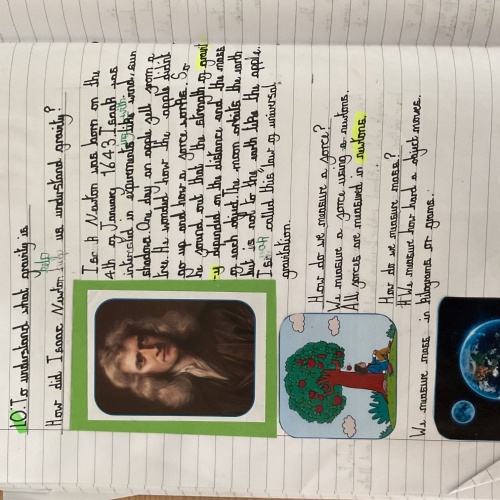 LO: To understand what gravity is
How did Isaac Newton help us understand gravity?
Isaac Newton was born on the
4th of January 1643. Isaak was
intrested in experiments like wind, sun
shadow. One day an apple fell from a
tree. He wondered how the apple didnt
go up and how a force works. So
he found out that the strength of gravit
y depended on the distance and the mass
of each object. the moon orbits the earth
but is not to the earth like the apple.
Isaac called this "law of universal
gravitation.
How do we measure a force?
We measure a force using a newtons.
All forces are measured in newtons.
How do we measure mass?
We measure how hard a object moves.
We measure mass in kilograms or grams.